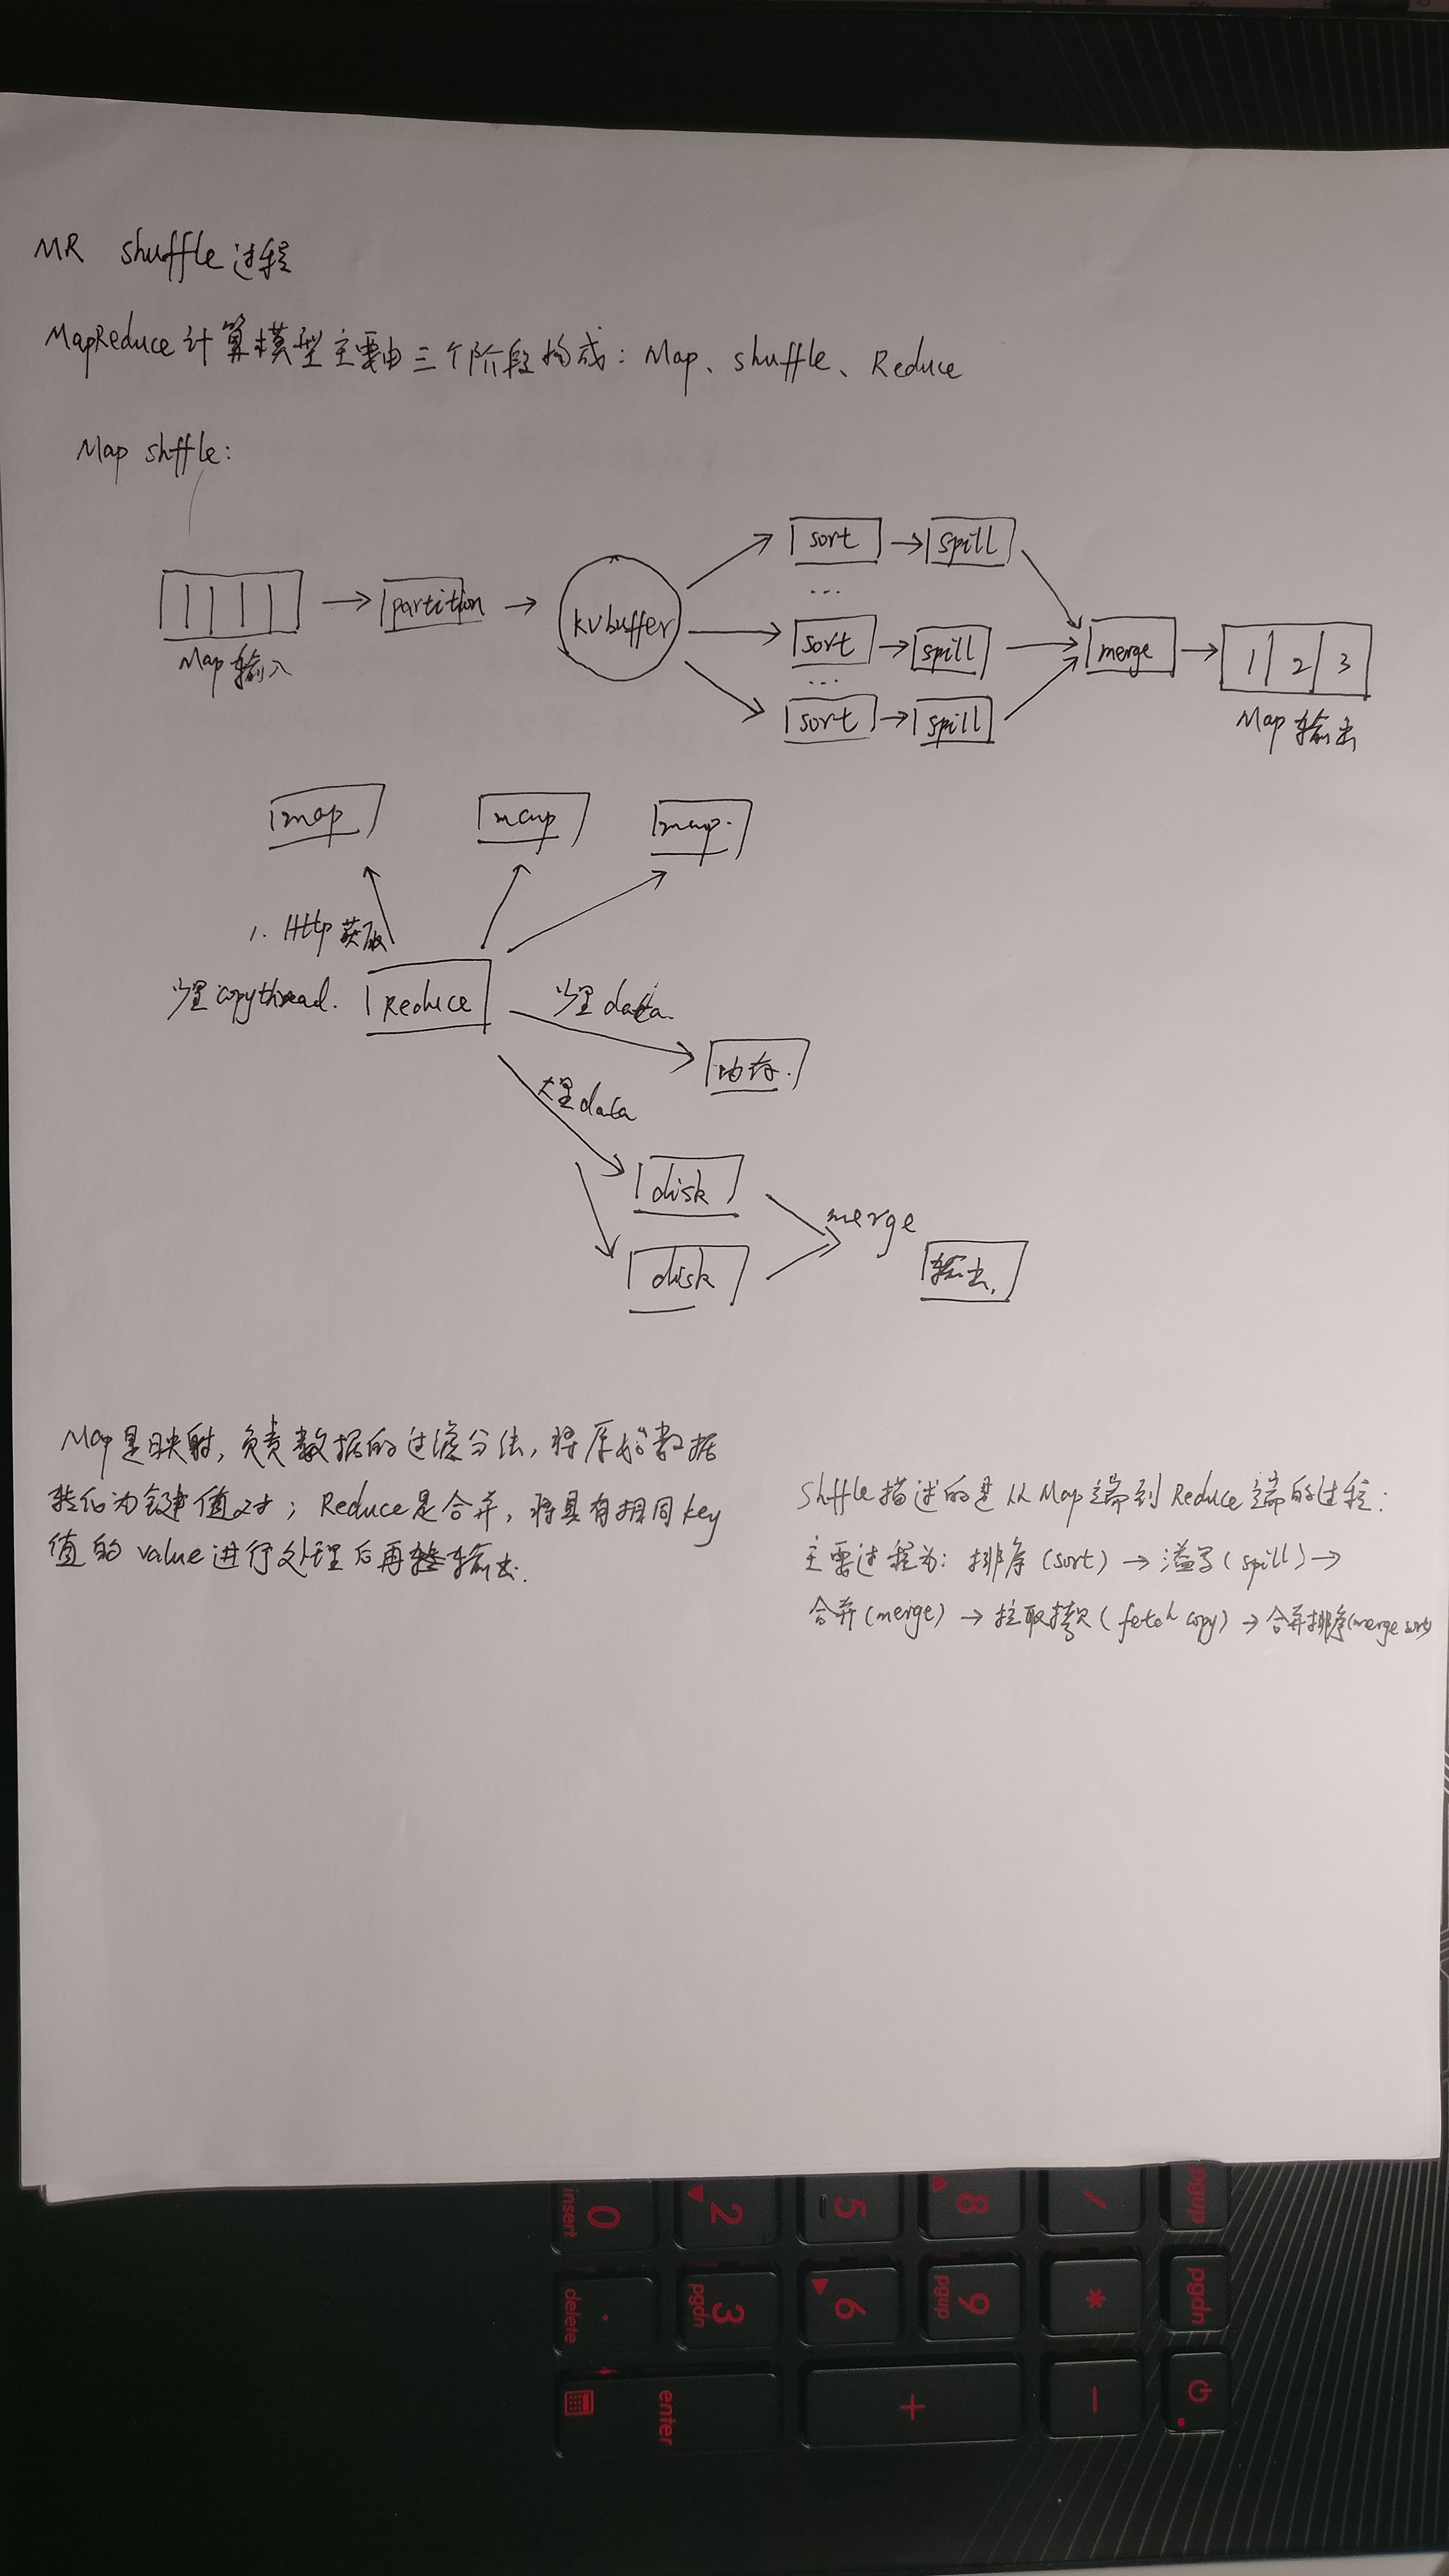 MR shuffle过程
MapReduce计算模型主要由三个阶段构成：Map、shuffle、Reduce
Map shffle：
sort → spill
...
Map输入 → partition → kvbuffer
sort → spill → merge → 1 2 3
...
sort → spill
Map输出
map map map.
1. Http获取
少量copythread. Reduce 少量data.
内存.
大量data
disk
merge
disk 输出.
Map是映射，负责数据的过滤分法，将原始数据
转化为键值对；Reduce是合并，将具有相同key
值的value进行处理后再输出.
Shffle描述的是从Map端到Reduce端的过程：
主要过程为：排序(sort) → 溢写(spill) →
合并(merge) → 拉取拷贝(fetch copy) → 合并排序(merge sort)
insert 0 2 5 8 / pgup
delete . 3 pgdn 6 9 pgup * pgdn
enter + -